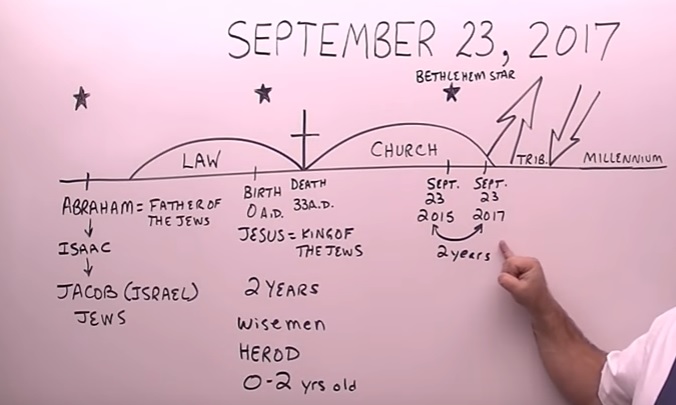 SEPTEMBER 23, 2017
BETHLEHEM STAR
LAW
CHURCH
TRIB.
MILLENNIUM
ABRAHAM = FATHER OF
THE JEWS
ISAAC
JACOB (ISRAEL)
JEWS
BIRTH
0 A.D.
DEATH
33 A.D.
JESUS = KING OF
THE JEWS
2 YEARS
Wisemen
HEROD
0-2 yrs old
SEPT.
23
2015
SEPT.
23
2017
2 years